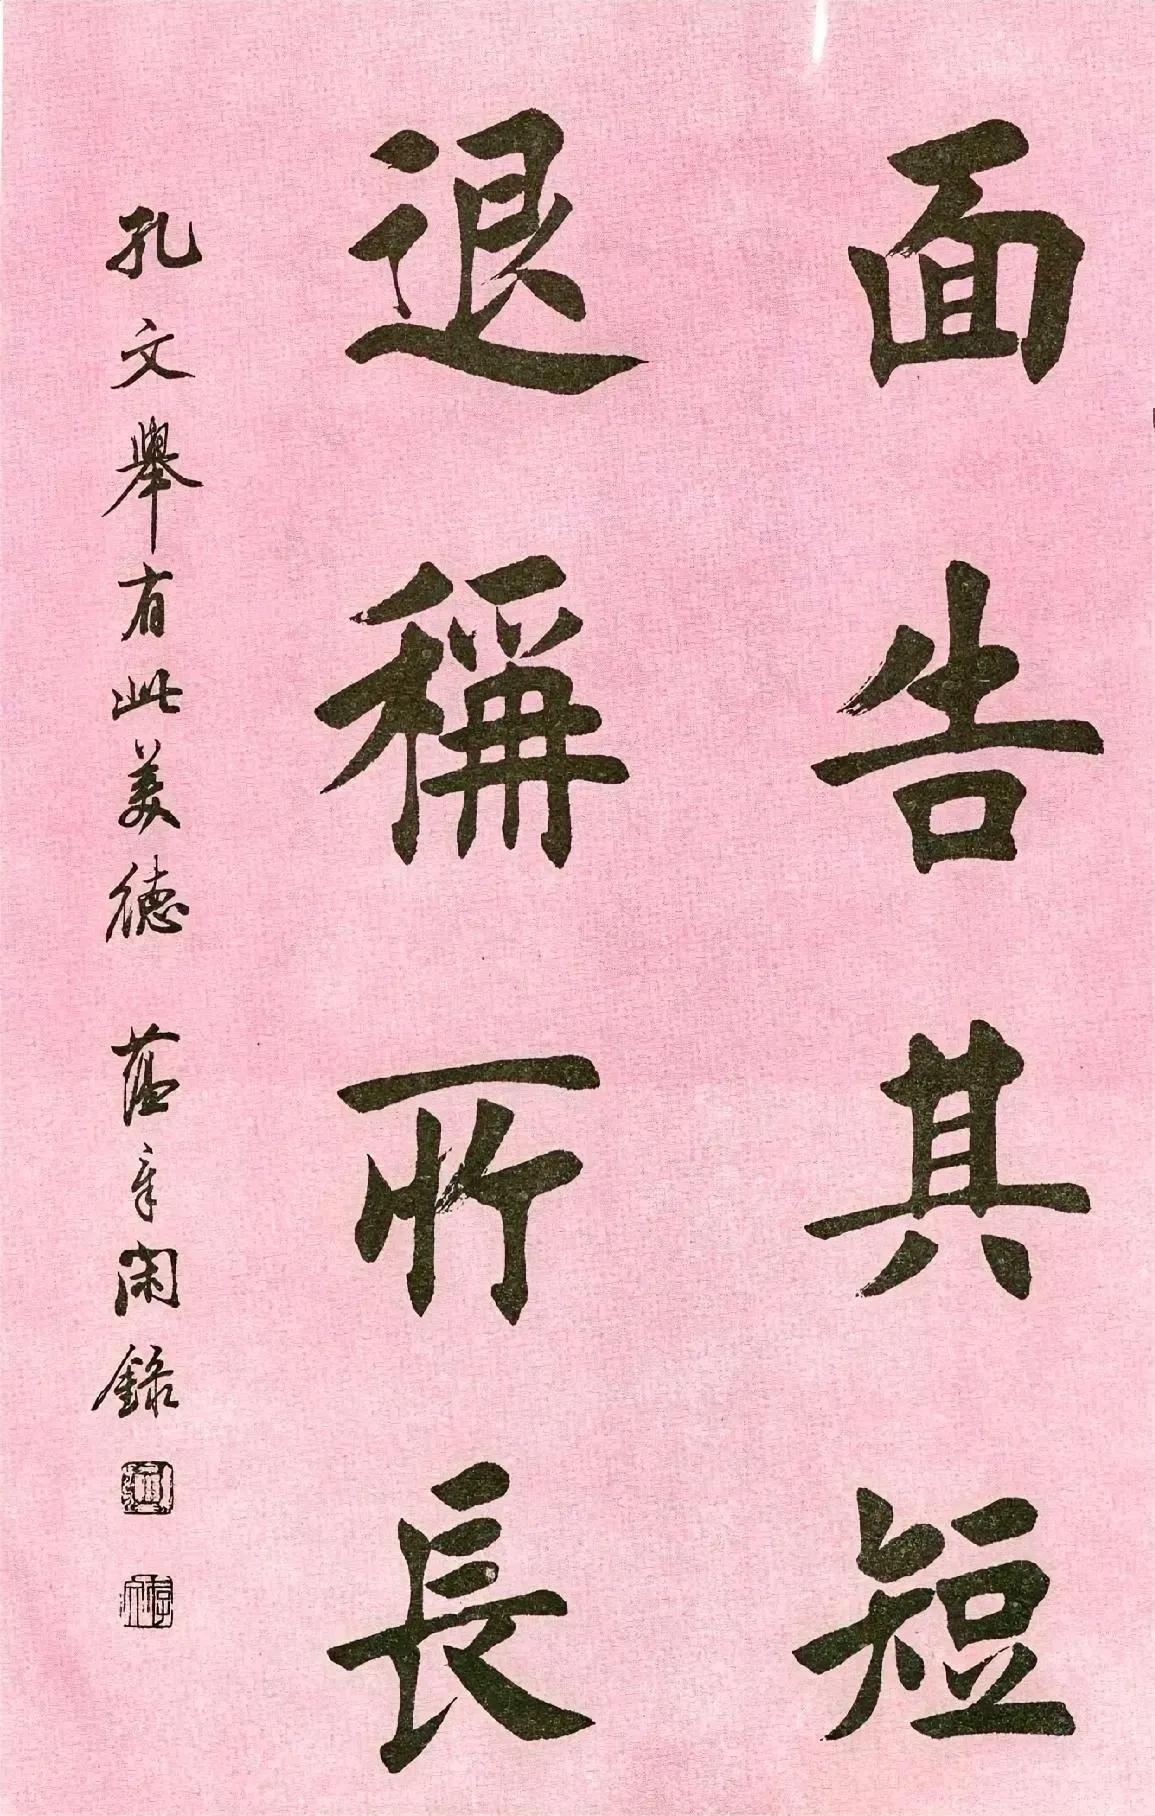 面告其短
退稱所長
孔文舉有此美德 蘊章閑錄